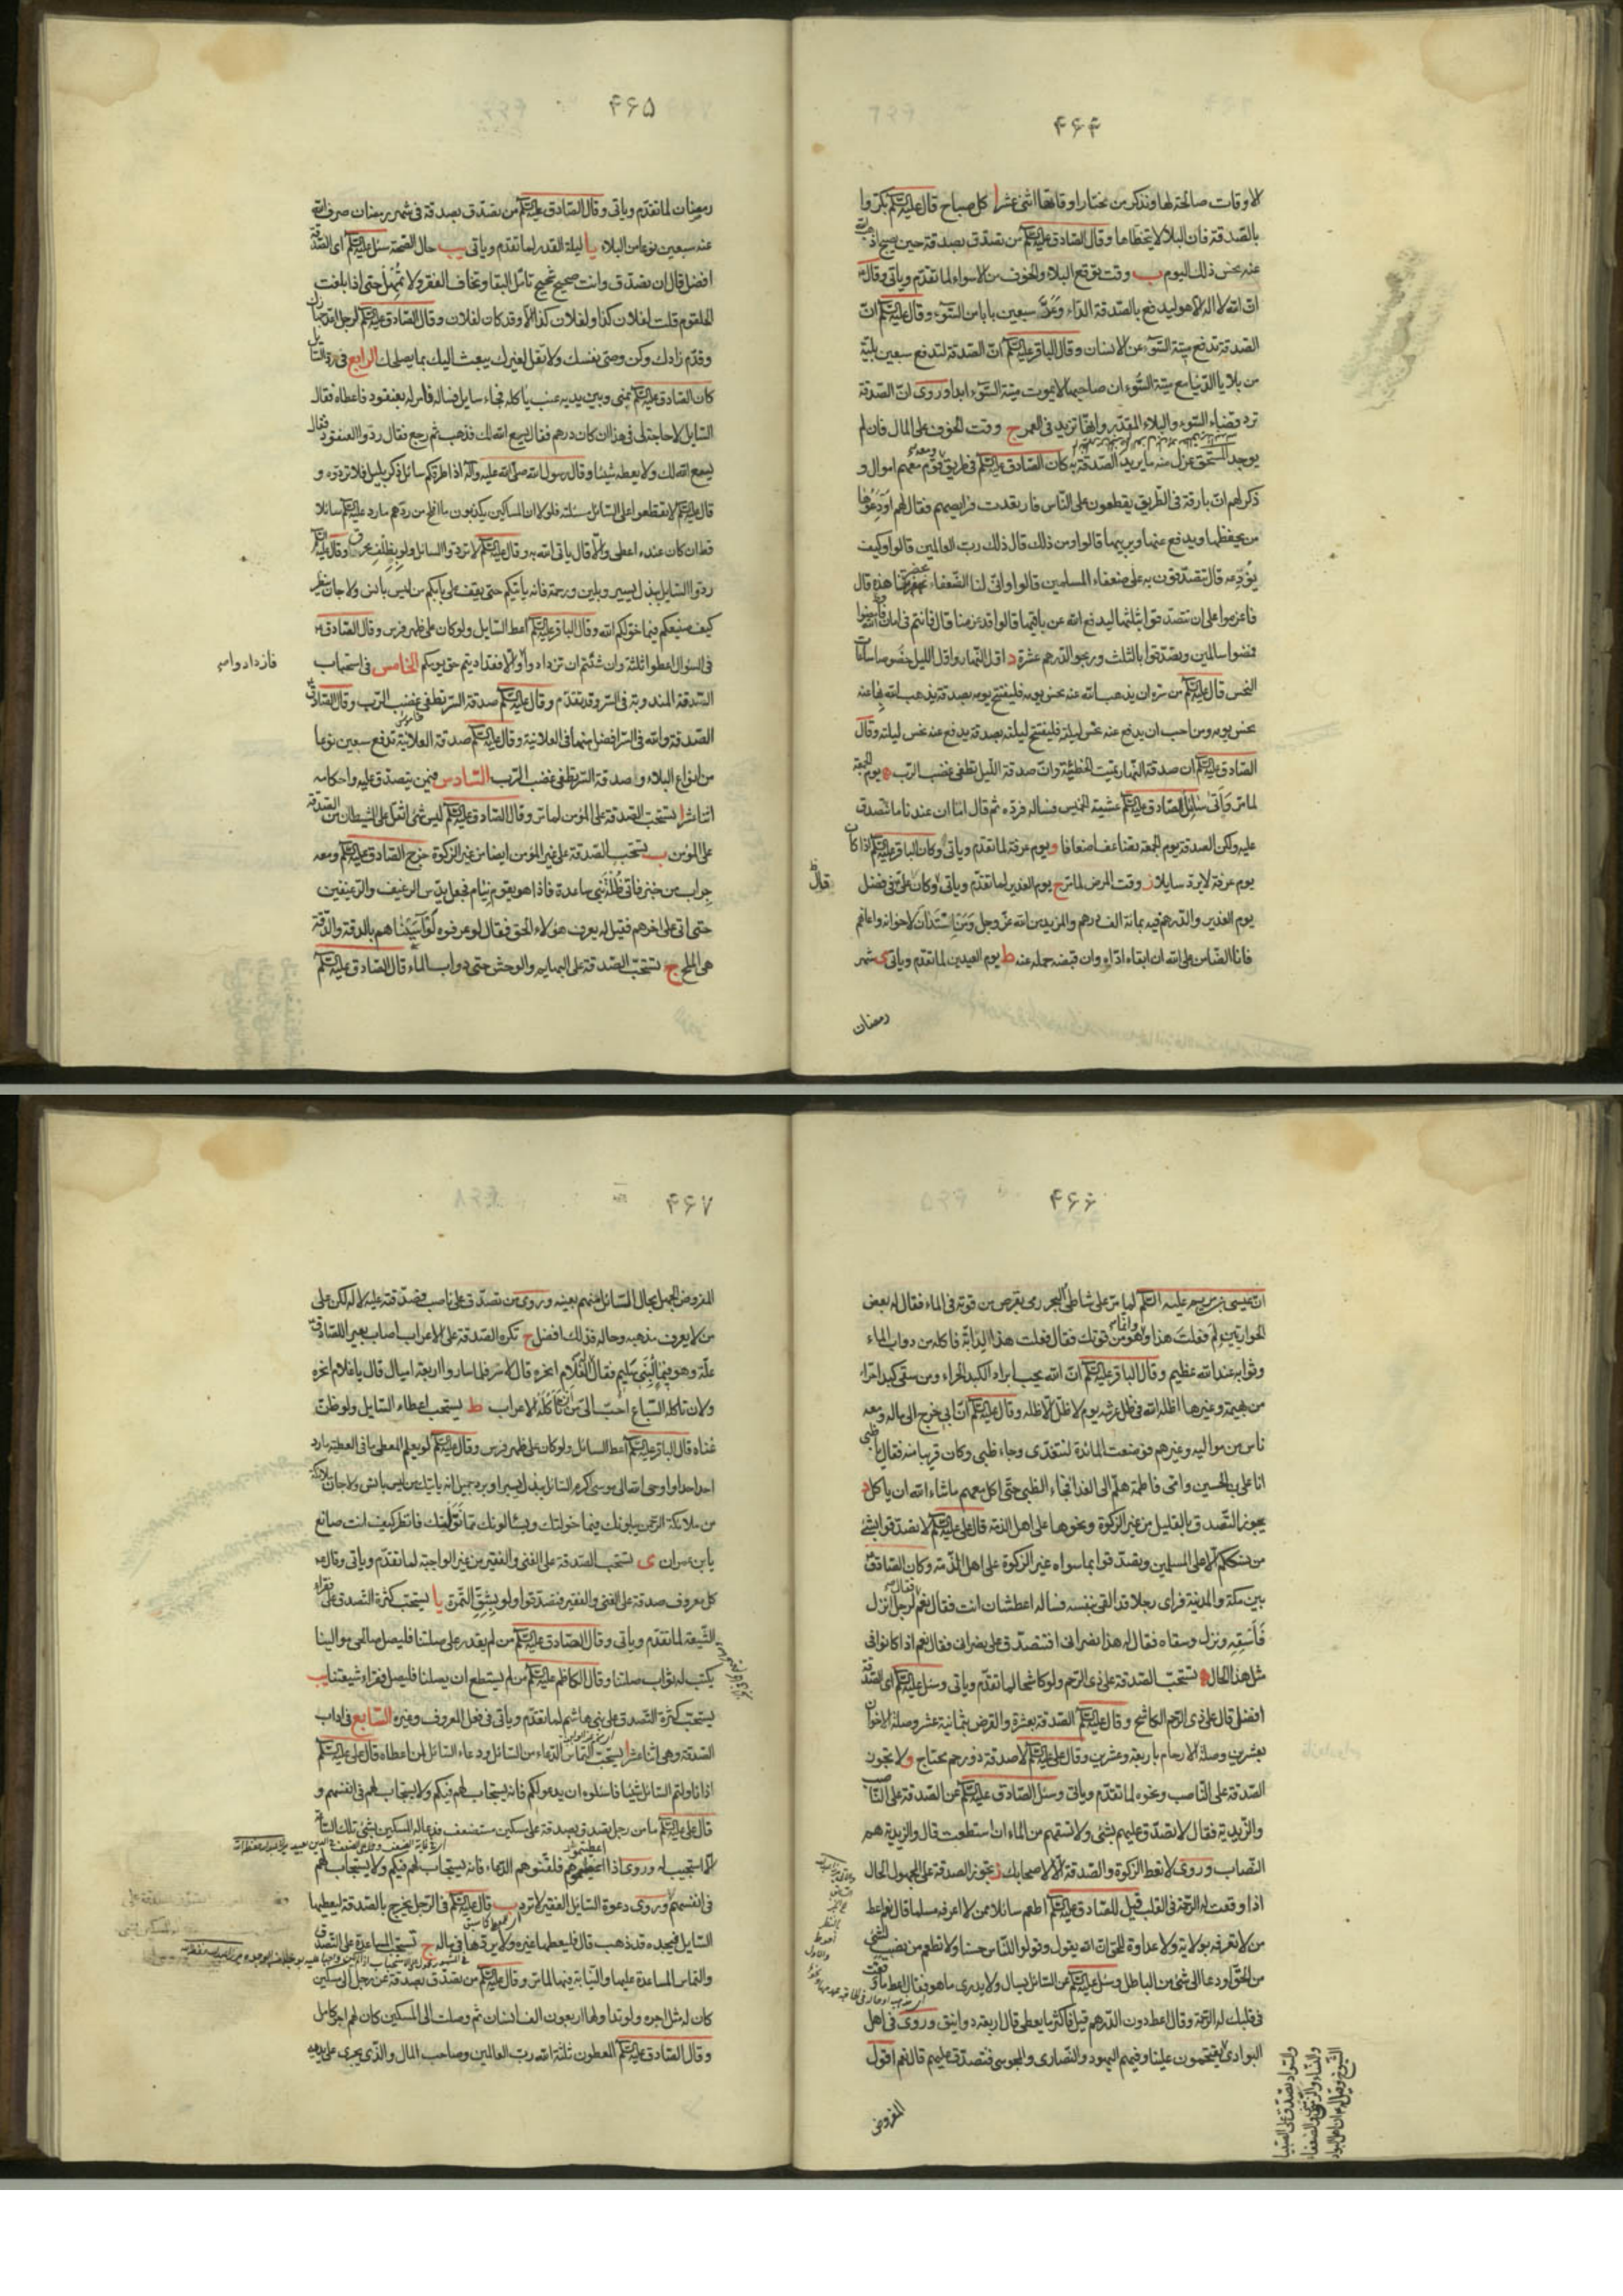 ۴۶۴
الاوقات صالحة لها ونذكر من مختار اوقاتها اثنى عشر ا كل صباح قال عليه السلام بكروا
بالصدقة فان البلاء لا يتخطاها وقال الصادق عليه السلام من تصدق بصدقة حين يصبح اذهب الله
عنه نحس ذلك اليوم ب وقت توقع البلاء والخوف من الاسواء لما تقدم وياتى وقال
ان الله لا اله الا هو ليدفع بالصدقة الداء وعد سبعين بابا من السوء وقال عليه السلام ان
الصدقة تدفع ميتة السوء عن الانسان وقال الباقر عليه السلام ان الصدقة لتدفع سبعين بلية
من بلايا الدنيا مع ميتة السوء ان صاحبها لا يموت ميتة السوء ابدا وروى ان الصدقة
ترد قضاء السوء والبلاء المقدر وانها تزيد فى العمر ج وقت الخوف على المال فان لم
يوجد المستحق عزل منه ما يريد الصدقة به كان الصادق عليه السلام فى طريق ومعه قوم معهم اموال و
ذكر لهم ان بارقة فى الطريق يقطعون على الناس فارتعدت فرايصهم فقال لهم اودعوها
من يحفظها ويدفع عنها ويربيها قالوا ومن ذلك قال ذلك رب العالمين قالوا وكيف
نودعه قال تتصدقون به على ضعفاء المسلمين قالوا وانى لنا الضعفاء بحضرتنا هذه قال
فاعزموا على ان تتصدقوا بثلثها ليدفع الله عن باقيها قالوا قد عزمنا قال فانتم فى امان الله فامضوا
فمضوا سالمين وتصدقوا بالثلث وربحوا الدرهم عشرة د اول النهار واول الليل خصوصا ساعات
النحس قال عليه السلام من سره ان يذهب الله عنه نحس يومه فليفتتح يومه بصدقة يذهب الله بها عنه
نحس يومه ومن احب ان يدفع عنه نحس ليلته فليفتتح ليلته بصدقة يدفع عنه نحس ليلته وقال
الصادق عليه السلام ان صدقة النهار تميت الخطيئة وان صدقة الليل تطفى غضب الرب ه يوم الجمعة
لما مر واتى سائل الصادق عليه السلام عشية الخميس فساله فرده ثم قال اما ان عندنا ما نتصدق
عليه ولكن الصدقة يوم الجمعة تضاعف اضعافا و يوم عرفة لما تقدم وياتى وكان الباقر عليه السلام اذا كان
يوم عرفة لا يرد سايلا ز وقت المرض لما مر ح يوم الغدير لما تقدم وياتى وكان على فى فضل
يوم الغدير والدرهم فيه بمائة الف درهم والمزيد من الله عز وجل ومن استدان لاخوانه واعانهم
فانا الضامن على الله ان ابقاه اداه وان قبضه حمله عنه ط يوم العيدين لما تقدم وياتى ى شهر
رمضان
۴۶۵
رمضان لما تقدم وياتى وقال الصادق عليه السلام من تصدق بصدقة فى شهر رمضان صرف الله
عنه سبعين نوعا من البلاء يا ليلة القدر لما تقدم وياتى يب حال الصحة سئل عليه السلام اى الصدقة
افضل قال ان تصدق وانت صحيح شحيح تامل البقا وتخاف الفقر ولا تمهل حتى اذا بلغت
الحلقوم قلت لفلان كذا ولفلان كذا الا وقد كان لفلان وقال الصادق عليه السلام لرجل اعد جهازك
وقدم زادك وكن وصى نفسك ولا تقل لغيرك يبعث اليك بما يصلحك الرابع فى رد السائل
كان الصادق عليه السلام بمنى وبين يديه عنب ياكله فجاء سايل فساله فامر له بعنقود فاعطاه فقال
السايل لا حاجة لى فى هذا ان كان درهم فقال يسع الله لك فذهب ثم رجع فقال ردوا العنقود فقال
يسع الله لك ولا يعطه شيئا وقال رسول الله صلى الله عليه وآله اذا طرقكم سائل ذكر بليل فلا تردوه و
قال عليه السلام لا تقطعوا على السائل مسئلته فلو لا ان المساكين يكذبون ما افلح من ردهم ما رد عليه السلام سائلا
قط ان كان عنده اعطى والا قال ياتى الله به وقال عليه السلام لا تردوا السائل ولو بظلف محرق وقال عليه السلام
ردوا السايل ببذل يسير وبلين ورحمة فانه ياتيكم حتى يقف على بابكم من ليس بانس ولا جان ينظر
كيف صنيعكم فيما خولكم الله وقال الباقر عليه السلام اعط السايل ولو كان على ظهر فرس وقال الصادق
فى السؤال اعطوا ثلثة وان شئتم ان تزدادوا والا فقد اديتم حق يومكم الخامس فى استحباب
فازدادوا
الصدقة المندوبة فى السر وقد تقدم وقال عليه السلام صدقة السر تطفى غضب الرب وقال الصادق
الصدقة والله فى السر افضل منها فى العلانية وقال عليه السلام صدقة العلانية تدفع سبعين نوعا
من انواع البلاء وصدقة السر تطفى غضب الرب السادس فيمن يتصدق عليه واحكامه
اثنا عشر ا تستحب الصدقة على المؤمن لما مر وقال الصادق عليه السلام ليس شئ اثقل على الشيطان من الصدقة
على المؤمن ب تستحب الصدقة على غير المؤمن ايضا من غير الزكوة خرج الصادق عليه السلام ومعه
جراب من خبز فاتى ظلة بنى ساعدة فاذا هو بقوم نيام فجعل يدس الرغيف والرغيفين
حتى اتى على اخرهم فقيل له يعرف هؤلاء الحق فقال لو عرفوه لواسيناهم بالدقة والدقة
هى الملح ج تستحب الصدقة على البهايم والوحش حتى دواب الماء قال الصادق عليه السلام
۴۶۶
ان عيسى بن مريم عليه السلام لما مر على شاطئ البحر رمى بقرص من قوته فى الماء فقال له بعض
الحواريين لم فعلت هذا وانما هو من قوتك فقال فعلت هذا لدابة تاكله من دواب الماء
وثوابه عند الله عظيم وقال الباقر عليه السلام ان الله يحب ابراد الكبد الحراء ومن سقى كبدا حراء
من بهيمة وغيرها اظله الله فى ظل عرشه يوم لا ظل الا ظله وقال عليه السلام ان ابى خرج الى ماله ومعه
ناس من مواليه وغيرهم فوضعت المائدة لنتغدى وجاء ظبى وكان قريبا منه فقال يا ظبى
انا على بن الحسين وامى فاطمة هلم الى الغدا فجاء الظبى حتى اكل معهم ما شاء الله ان ياكل د
يجوز التصدق بالقليل من غير الزكوة ونحوها على اهل الذمة قال على عليه السلام لا تصدقوا بشئ
من نسككم الا على المسلمين وتصدقوا بما سواه غير الزكوة على اهل الذمة وكان الصادق
بين مكة والمدينة فراى رجلا قد القى بنفسه فساله اعطشان انت فقال نعم فقال لرجل انزل
فاسقه ونزل وسقاه فقال له هذا نصرانى افتتصدق على نصرانى فقال نعم اذا كانوا فى
مثل هذا الحال ه تستحب الصدقة على ذى الرحم ولو كاشحا لما تقدم وياتى وسئل عليه السلام اى الصدقة
افضل قال على ذى الرحم الكاشح وقال عليه السلام الصدقة بعشرة والقرض بثمانية عشر وصلة الاخوان
بعشرين وصلة الارحام باربعة وعشرين وقال على عليه السلام لا صدقة وذو رحم محتاج و لا تجوز
الصدقة على الناصب ونحوه لما تقدم وياتى وسئل الصادق عليه السلام عن الصدقة على الناصب
والزيدية فقال لا تصدق عليهم بشئ ولا تسقهم من الماء ان استطعت قال والزيدية هم
النصاب وروى لا تعط الزكوة والصدقة الا لاصحابك ز تجوز الصدقة على المجهول الحال
اذا وقعت له الرحمة فى القلب قيل للصادق عليه السلام اطعم سائلا من لا اعرفه مسلما قال نعم اعط
من لا تعرفه بولاية ولا عداوة للحق ان الله يقول وقولوا للناس حسنا ولا تطعم من نصب لشئ
من الحق او دعا الى شئ من الباطل وسئل عليه السلام عن السائل يسال ولا يدرى ما هو فقال اعط من وقعت
فى قلبك له الرحمة وقال اعط دون الدرهم قيل فاكثر ما يعطى قال اربعة دوانيق وروى فى اهل
البوادى يقتحمون علينا وفيهم اليهود والنصارى والمجوس فتصدق عليهم قال نعم اقول
المفروض
۴۶۷
المفروض الجهل بحال السائل منهم بعينه وروى من تصدق على ناصب فصدقته عليه لا له لكن على
من لا يعرف مذهبه وحاله فذلك افضل ح تكره الصدقة على الاعراب اصاب بعير اللصادق
علة وهو فى ماء لبنى سليم فقال الغلام انحره قال لا سر فلما ساروا اربعة اميال قال يا غلام انحره
ولان تاكله السباع احب الى من ان تاكله الاعراب ط يستحب اعطاء السايل ولو ظن
غناه قال الباقر عليه السلام اعط السائل ولو كان على ظهر فرس وقال عليه السلام لو يعلم المعطى ما فى العطية ما رد
احد احدا واوحى الله الى موسى اكرم السائل ببذل يسير او برد جميل انه ياتيك من ليس بانس ولا جان ملائكة
من ملائكة الرحمن يبلونك فيما خولتك ويسئالونك مما نولتك فانظر كيف انت صانع
يا بن عمران ى تستحب الصدقة على الغنى والفقير من غير الواجبة لما تقدم وياتى وقال
كل معروف صدقة على الغنى والفقير فتصدقوا ولو بشق التمرة يا يستحب كثرة التصدق على فقراء
الشيعة لما تقدم وياتى وقال الصادق عليه السلام من لم يقدر على صلتنا فليصل صالحى موالينا
يكتب له ثواب صلتنا وقال الكاظم عليه السلام من لم يستطع ان يصلنا فليصل فقراء شيعتنا يب
يستحب كثرة التصدق على بنى هاشم لما تقدم وياتى فى فعل المعروف وغيره السابع فى اداب
الصدقة وهى اثنا عشر ا يستحب التماس الدعاء من السائل ودعاء السائل لمن اعطاه قال على عليه السلام
اذا ناولتم السائل شيئا فاسئلوه ان يدعو لكم فانه يستجاب لهم فيكم ولا يستجاب لهم فى انفسهم و
قال على عليه السلام ما من رجل تصدق بصدقة على مسكين مستضعف فدعا له المسكين بشئ تلك الساعة
الا استجيب له وروى اذا اعطيتموهم فلقنوهم الدعاء فانه يستجاب لهم فيكم ولا يستجاب لهم
فى انفسهم وروى دعوة السايل الفقير لا ترد ب قال عليه السلام فى الرجل يخرج بالصدقة ليعطيها
السايل فيجده قد ذهب قال فليعطها غيره ولا يردها فى ماله ج تستحب المساعدة على التصدق
والتماس المساعدة عليها والنيابة فيها لما مر وقال عليه السلام من تصدق بصدقة عن رجل الى مسكين
كان له مثل اجره ولو تداولها اربعون الف انسان ثم وصلت الى المسكين كان لهم اجر كامل
وقال الصادق عليه السلام المعطون ثلثة الله رب العالمين وصاحب المال والذى يجرى على يديه